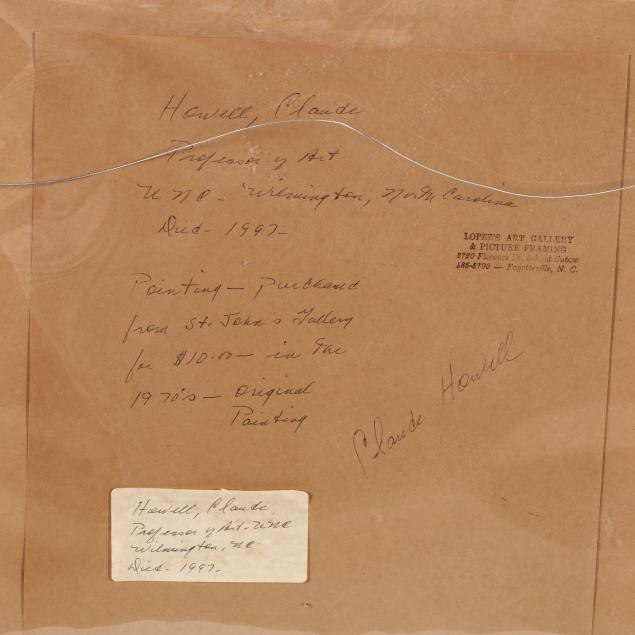 Howell, Claude
Professor of Art
UNC - Wilmington, North Carolina
Died - 1997 -
LOPEZ'S ART GALLERY
& PICTURE FRAMING
2720 Florence Dr.
485-5700 — Fayetteville, N. C.
Painting — purchased
from St. John's Gallery
for $10.00 — in the
1970's — Original
Painting
Claude Howell
Howell, Claude
Professor of Art - UNC
Wilmington, NC -
Died - 1997 -